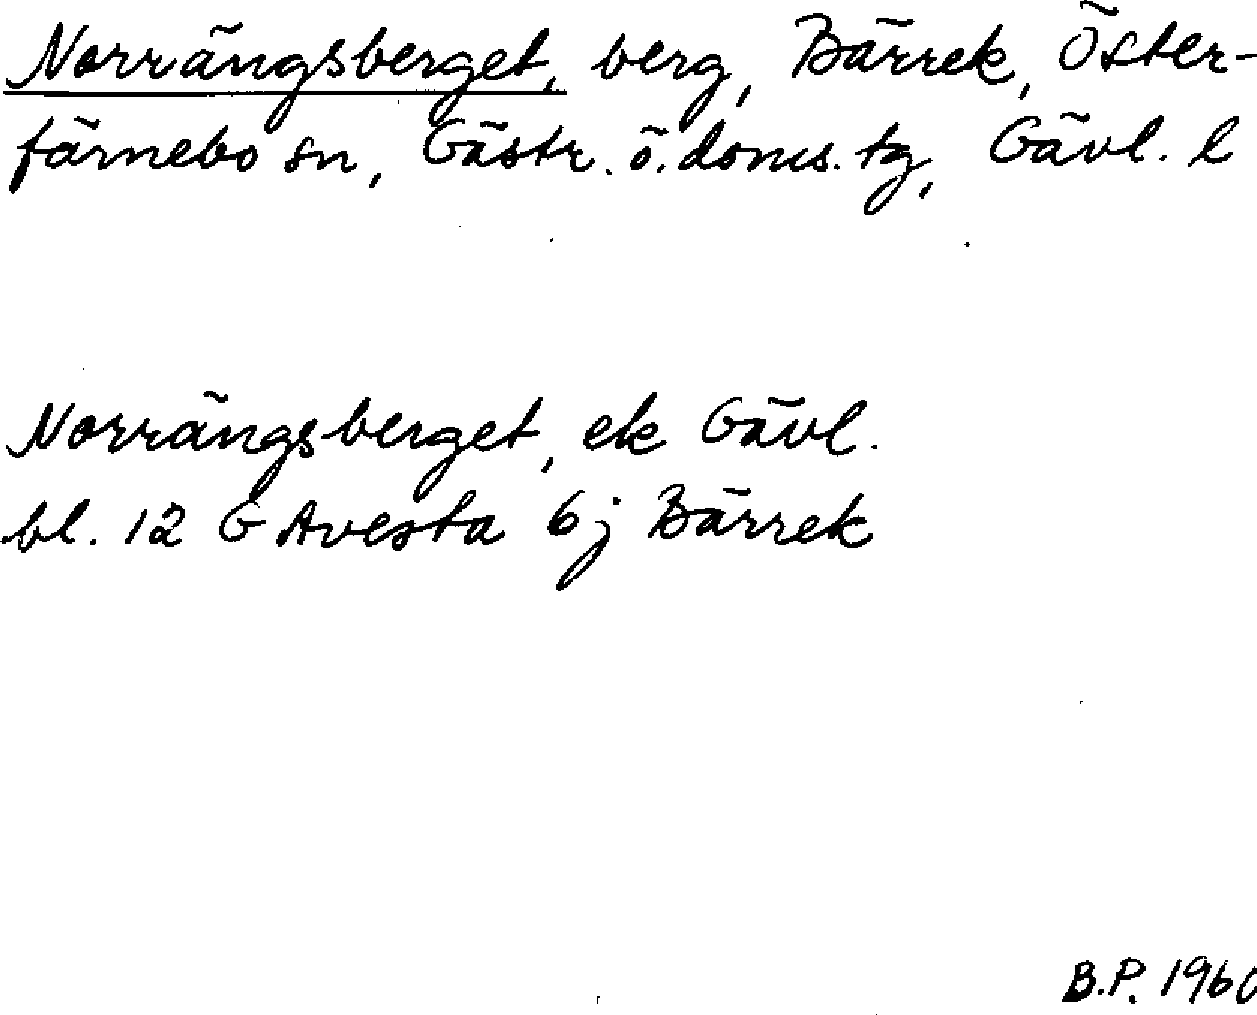 Norrängsberget, berg, Bärrek, Öster-
färnebo sn, Gästr. ö. doms. tg, Gävl. l
Norrängsberget, ek Gävl.
bl. 12 G Avesta 6j Bärrek
B.P. 1960